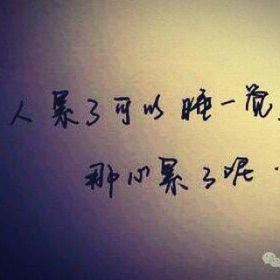 人累了可以睡一觉,
那心累了呢